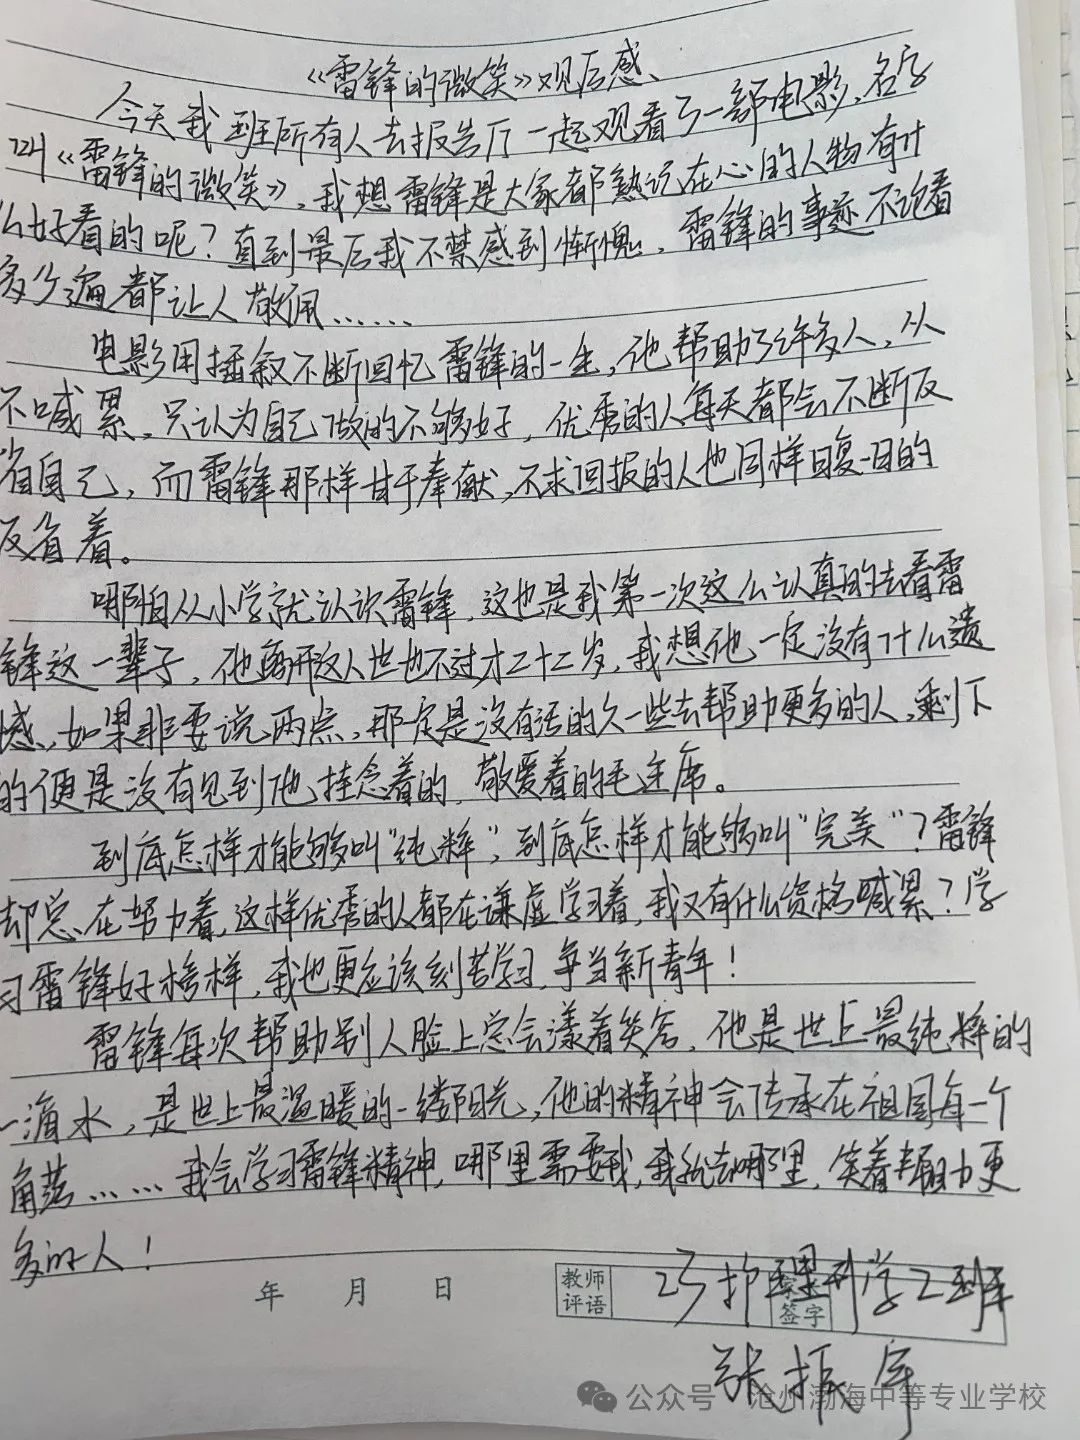 《雷锋的微笑》观后感、
今天我班所有人去报告厅一起观看了一部电影、名字
叫《雷锋的微笑》，我想雷锋是大家都熟记在心的人物有什
么好看的呢？直到最后我不禁感到惭愧、雷锋的事迹不论看
多少遍都让人敬佩……
电影用插叙不断回忆雷锋的一生，他帮助了许多人，从
不喊累，只认为自己做的不够好，优秀的人每天都会不断反
省自己，而雷锋那样甘于奉献，不求回报的人也同样日复一日的
反省着。
哪怕从小学就认识雷锋，这也是我第一次这么认真的去看雷
锋这一辈子，他离开这人世也不过才二十二岁，我想他一定没有什么遗
憾，如果非要说两点，那一定是没有活的久一些去帮助更多的人，剩下
的便是没有见到他挂念着的，敬爱着的毛主席。
到底怎样才能够叫“纯粹”，到底怎样才能够叫“完美”？雷锋
却总在努力着，这样优秀的人都在谦虚学习着，我又有什么资格喊累？学
习雷锋好榜样，我也更应该刻苦学习，争当新青年！
雷锋每次帮助别人脸上总会漾着笑容，他是世上最纯粹的
一滴水，是世上最温暖的一缕阳光，他的精神会传承在祖国每一个
角落……我会学习雷锋精神，哪里需要我，我就去哪里，笑着帮助更
多的人！
年 月 日
教师评语
签字
23护理升学2班
张振宇
公众号 沧州渤海中等专业学校